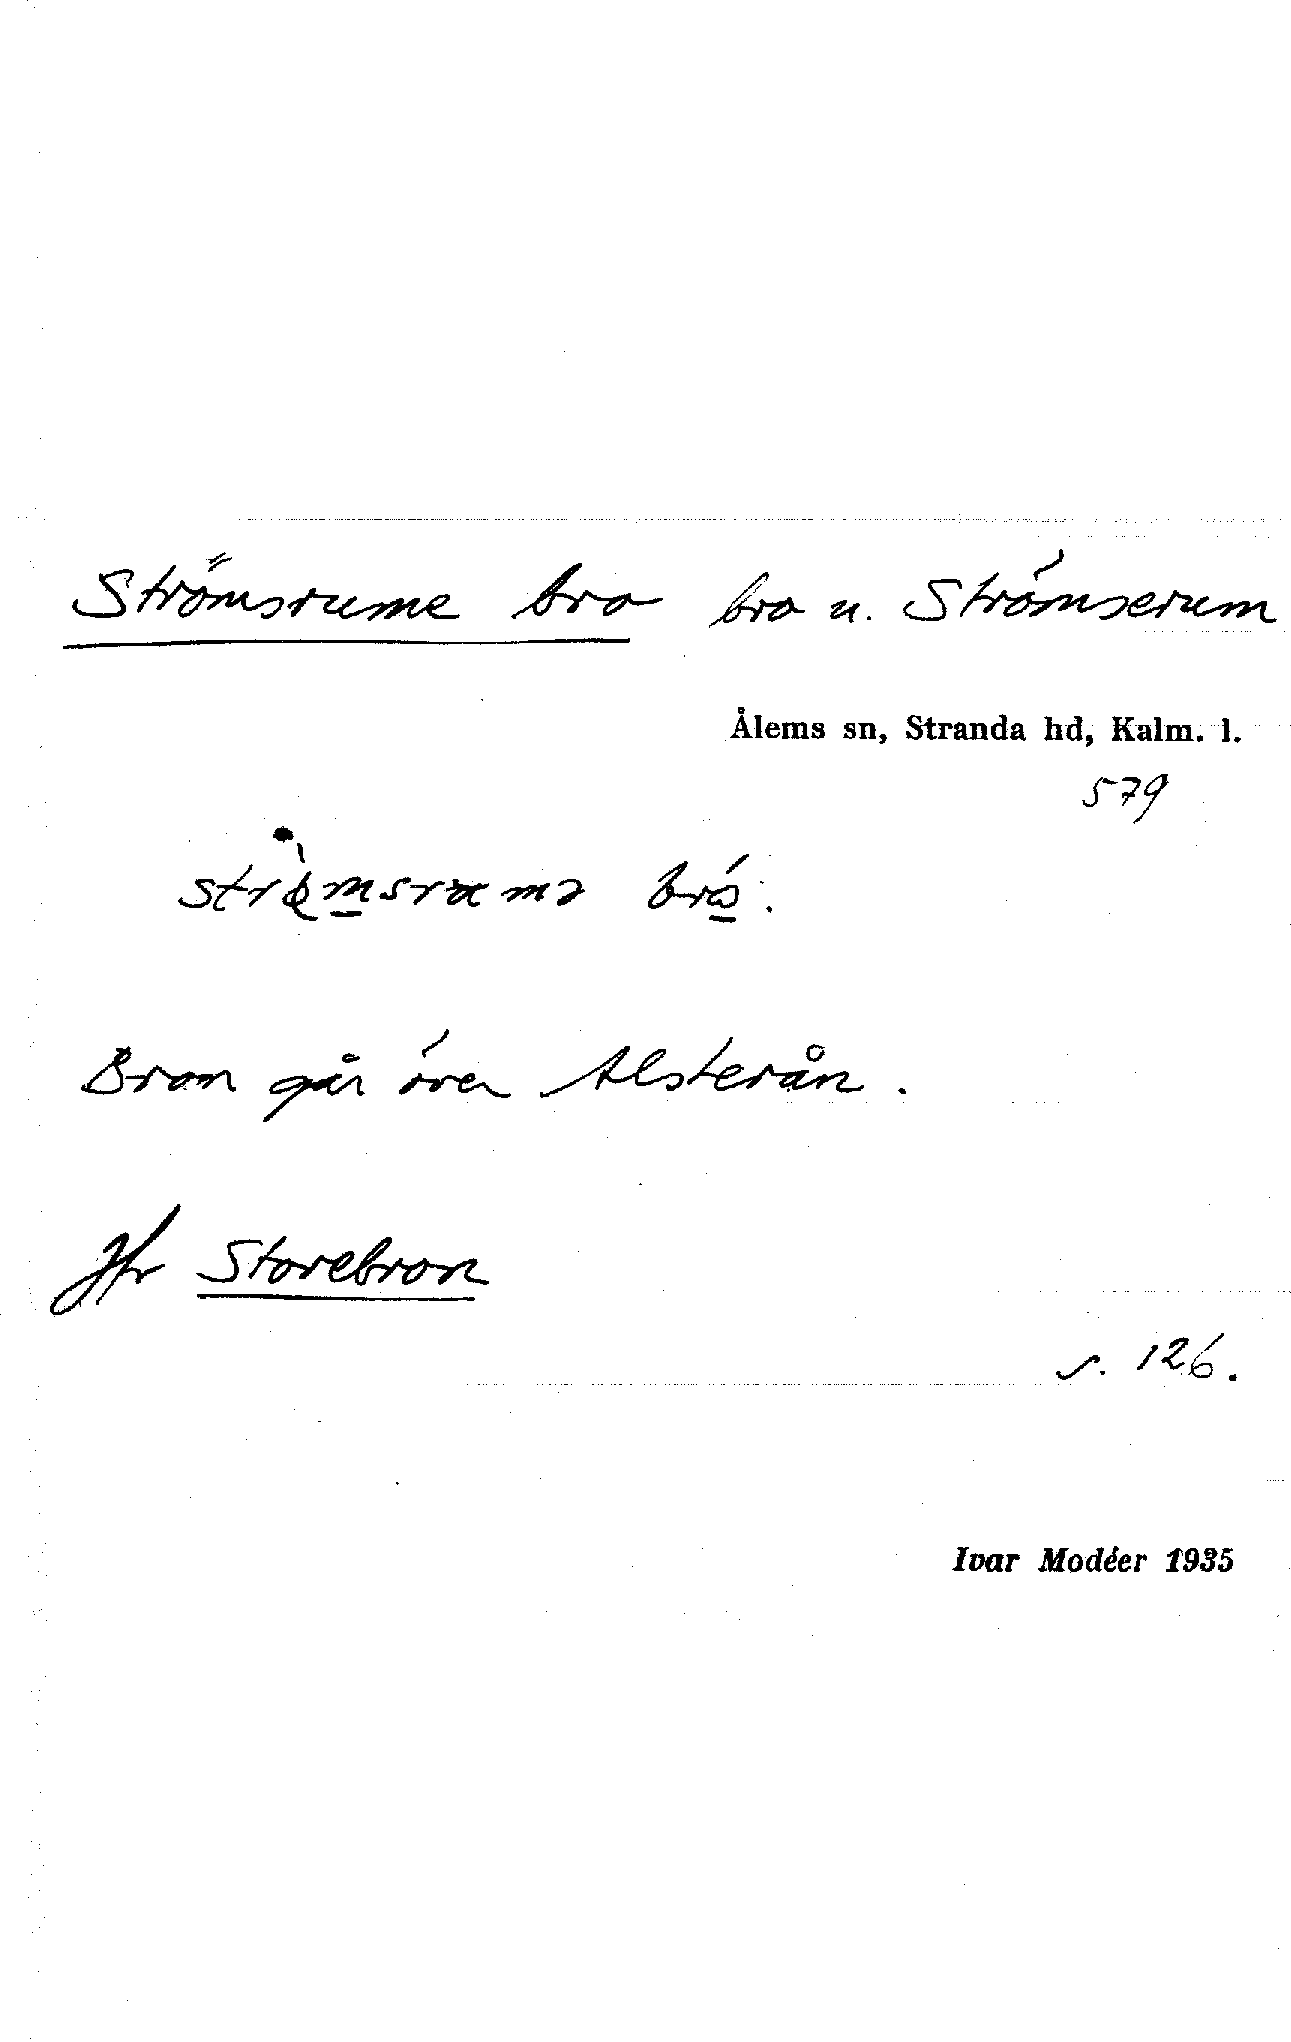 Strömsrume bro bro u. Strömserum
Ålems sn, Stranda hd, Kalm. l.
579
Bron går över Alsterån.
Jfr Storebron
s. 126.
Ivar Modéer 1935